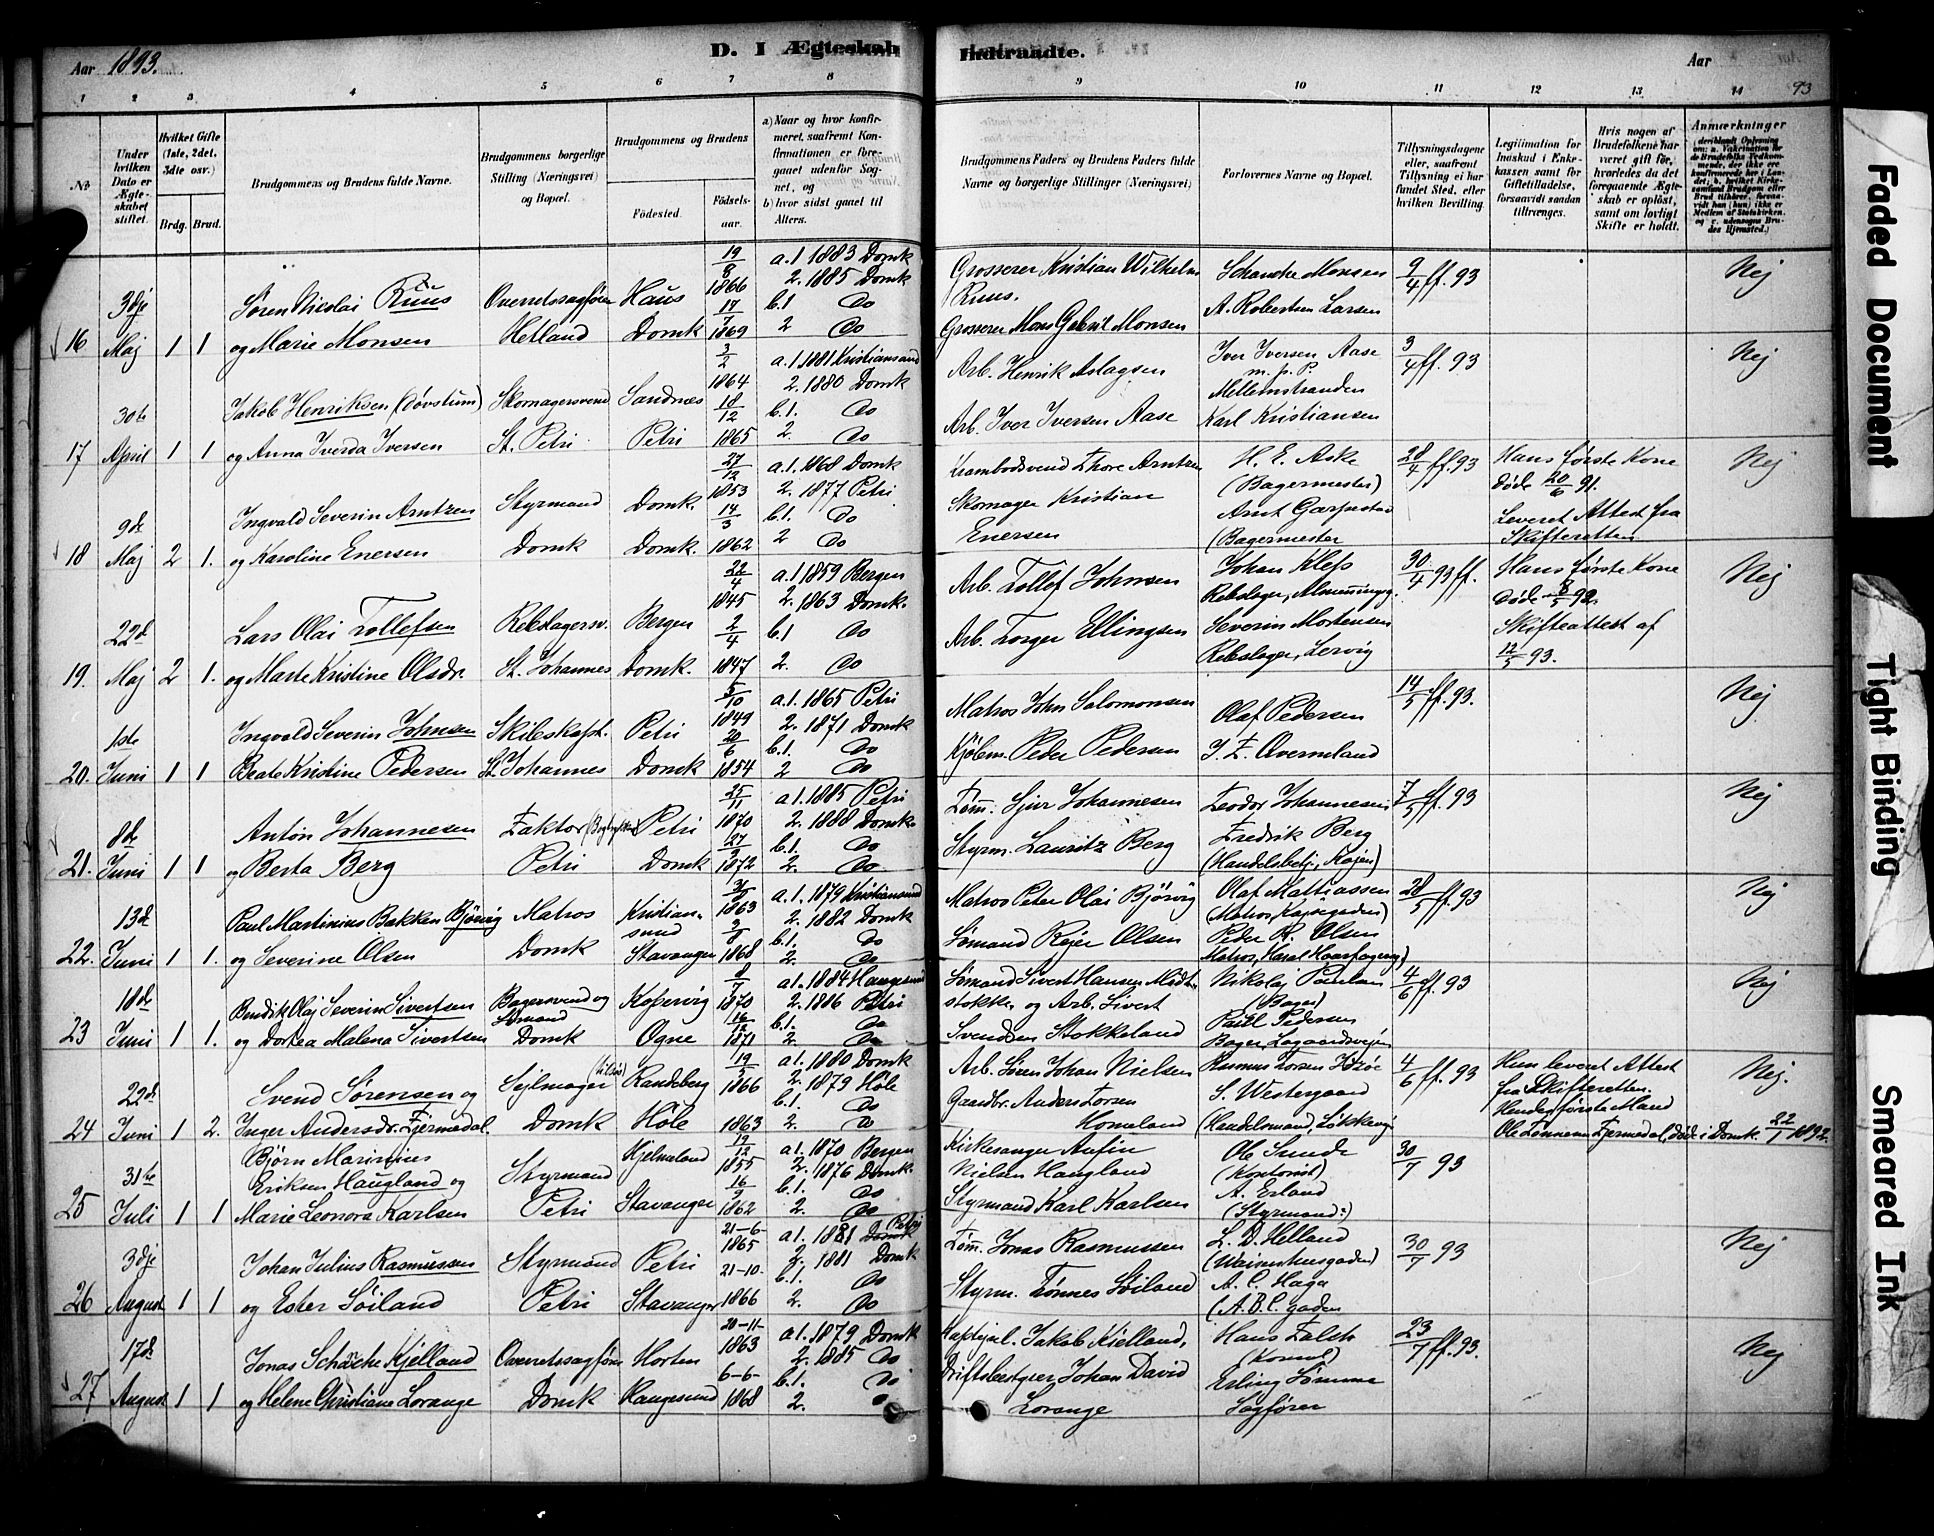 Aar 1893.
D. I Ægteskab Indtraadte.
Aar
93
1 2 3 4 5 6 7 8 9 10 11 12 13 14
No
Under hvilken Dato er Ægteskabet stiftet.
Hvilket Gifte (1ste, 2det, 3die osv.)
Brdg. Brud.
Brudgommens og Brudens fulde Navne.
Brudgommens borgerlige Stilling (Næringsvei) og Bopæl.
Brudgommens og Brudens
Födested.
Födsels-aar.
a) Naar og hvor konfirmeret, saafremt Konfirmationen er foregaaet udenfor Sognet, og
b) hvor sidst gaaet til Alters.
Brudgommens Faders og Brudens Faders fulde Navne og borgerlige Stillinger (Næringsvei)
Forlovernes Navne og Bopæl.
Tillysningsdagene eller, saafremt Tillysning ei har fundet Sted, efter hvilken Bevilling.
Legitimation for Indskud i Enkekassen samt for Giftetilladelse, forsaavidt saadan tiltrænges.
Hvis nogen af Brudefolkene har været gift för, hvorledes da det foregaaende Ægteskab er oplöst, samt om lovligt Skifte er holdt.
Anmærkninger
16 3dje Maj 1 1
Sören Nicolai Ruus
og Marie Monsen
Overretssagförer
Hetland
Haus
Domk
19/8 1866
17/7 1869
a.1 1883 Domk
2. 1885 Domk
b.1 Do
2 Do
Grosserer Kristian Wilhelm Ruus.
Grosserer Mons Gabriel Monsen
Schancke Monsen
A. Robertsen Larsen
9/4 ff. 93
Nej
17 30te April 1 1
Jakob Henriksen (Dövstum)
og Anna Iverda Iversen
Skomagersvend
St. Petri
Sandnæs
Petri
3/2 1864
18/12 1865
a.1 1881 Kristiansand
2. 1880 Domk
b.1. Do
2. Do
Arb. Henrik Aslagsen
Arb. Iver Iversen Aase
Iver Iversen Aase
m. p. P.
Mellemstranden
Karl Kristiansen
3/4 ff. 93
Nej
18 9de Maj 2 1.
Ingvald Severin Arntzen
og Karoline Enersen
Styrmand
Domk
Domk.
Domk.
27/12 1853
14/3 1862
a.1. 1868 Domk
2. 1877 Petri
b.1. Do
2 Do
Krambodsvend Thore Arntzen
Skomager Kristian Enersen
H. E. Aske
(Bagermester)
(Bagermester
28/4 ff. 93
Hans første Kone
døde 20/6 91.
Leveret Attest fra
Skifteretten
Nej
19. 22d Maj 2 1.
Lars Olai Tollefsen
og Marte Kristine Olsdr.
Rebslagersv.
St. Johannes
Bergen
Domk.
22/4 1845
2/4 1847
a.1 1859 Bergen
2. 1863 Domk.
b.1 Do
2. Do
Arb. Tollef Johnsen
Arb. Torger Ellingsen
Johan Klefs
Severin Mortensen
Rebslager, Lervig
30/4 93 ff.
Hans første Kone
døde 8/5 92.
Skifteattest af
12/5 93.
Nej
20. 1ste Juni 1 1
Ingvald Severin Johnsen
Beate Kristine Pedersen
Skibskapt.
St. Johannes
Petri
Domk
5/10 1849
20/6 1854
a.1. 1865 Petri
2. 1871 Domk
b.1. Do
2 Do
Matros John Salomonsen
Kjölem. Peder Pedersen
Olaf Pedersen
14/5 ff. 93.
Nej
21. 8d Juni 1 1
Anton Johannesen
og Berta Berg
Faktor
Petri
Petri
Domk
25/11 1870
1872
a1. 1885 Petri
2. 1888 Domk.
b.1. Do
2. Do
Töm. Sjur Johannesen
Styrm. Lauritz Berg
Teodor Johannesen
Fredrik Berg
(Handelsbetj., Kajen)
7/5 ff. 93
Nej
22. 13d Juni 1 1.
Paul Martinius Bakken Björvig
og Severine Olsen
Matros
Domk
Kristiansund
Stavanger
1863
1868
a.1. 1879 Kristiansund
2. 1882 Domk
b.1. Do
2. Do
Matros Peter Olai Björvig
Sömand Rejer Olsen
Olaf Mattiassen
Peder R. Olsen
28/5 ff. 93
Nej
23 18d Juni 1 1.
Bendik Olaj Severin Sivertsen
og Dortea Malena Sivertsen
Bagersvend og
Sömand
Domk
Kopervig
Ogne
8/7 1870
16/12 1871
a1. 1884 Haugesund
2. 1886 Petri
b.1. Do
2. Do
Sömand Sivert Hansen
stokke og Arb. Sivert
Svendsen Stokkeland
Nikolaj
(Bager)
Paul Pedersen
4/6 ff. 93
Nej
24 22d Juni 1 2.
Svend Sörensen og
Inger Andersdr. Fjermedal.
Sejlmager
Domk
Randeberg
Höle
1866
1863
a1. 1880 Domk
2. 1879 Höle
b.1. Do
2. Do
Arb. Sören Johan Nielsen
Gaardbr. Anders Torsen
Homeland
Rasmus Torsen
S. Westergaard
4/6 ff. 93
Hun leveret Attest
fra Skifteretten.
Hendes første Mand
Ole Tönnesen Fjermedal, døde i Domk. 22/1 1892.
Nej.
25 31te Juli 1 1
Björn Marinius
Eriksen Haugland og
Marie Leonora Karlsen
Styrmand
Petri
Hjelmeland
Stavanger
19/12 1855
16/9 1862
a1. 1870 Bergen
2. 1876 Domk
b.1. Do
2. Do
Kirkesanger Anfin
Nielsen Haugland
Styrmand Karl Karlsen
Ole Sunde
(Kontorist)
A. Erland
(Styrmand:)
30/7 93
26 3dje August 1 1
Johan Julius Rasmussen
og Ester Söiland
Styrmand
Petri
Petri
Stavanger
21-6- 1865
21-10- 1866
a1. 1881 Domk Petri
2. 1881 Domk
b.1. Do
2. Do
Töm. Jonas Rasmussen
Styrm. Tönnes Söiland
L. D. Helland
(Waisenhusgaden)
A. C. Haga
(A.B.C. gaden
30/7 93
Nej
27 17d August 1 1
Jonas Schancke Kjelland
og Helene Christiane Lorange
Overretssagförer
Domk
Horten
Haugesund
20-11- 1863
6-6- 1868
a1. 1879 Domk
2. 1885 Do
b.1. Do
2. Do
Jakob Kielland,
Driftsbestyrer Johan David
Lorange
Hans Falck
(Konsul)
Erling Sömme
Sagförer
23/7 ff. 93.
Nej
Faded Document
Tight Binding
Smeared Ink